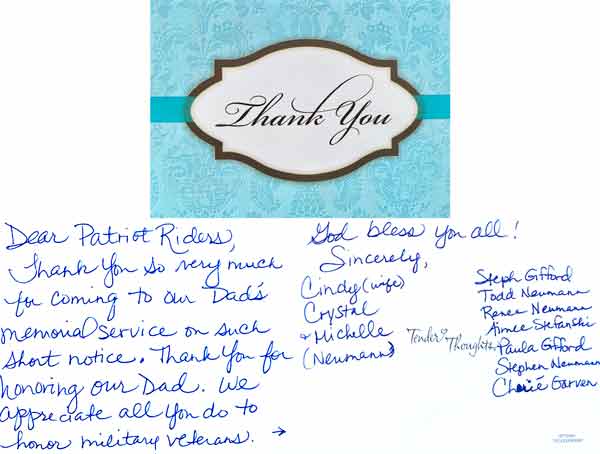 Thank You
Dear Patriot Riders,
Thank You so very much
for coming to our Dad's
memorial service on such
short notice. Thank You for
honoring our Dad. We
appreciate all You do to
honor military veterans. →
God bless you all!
Sincerely,
Cindy (wife)
Crystal
+ Michelle
(Neumann)
Tender Thoughts
Steph Gifford
Todd Neumann
Renee Neumann
Aimee Stefanski
Paula Gifford
Stephen Neumann
Garven